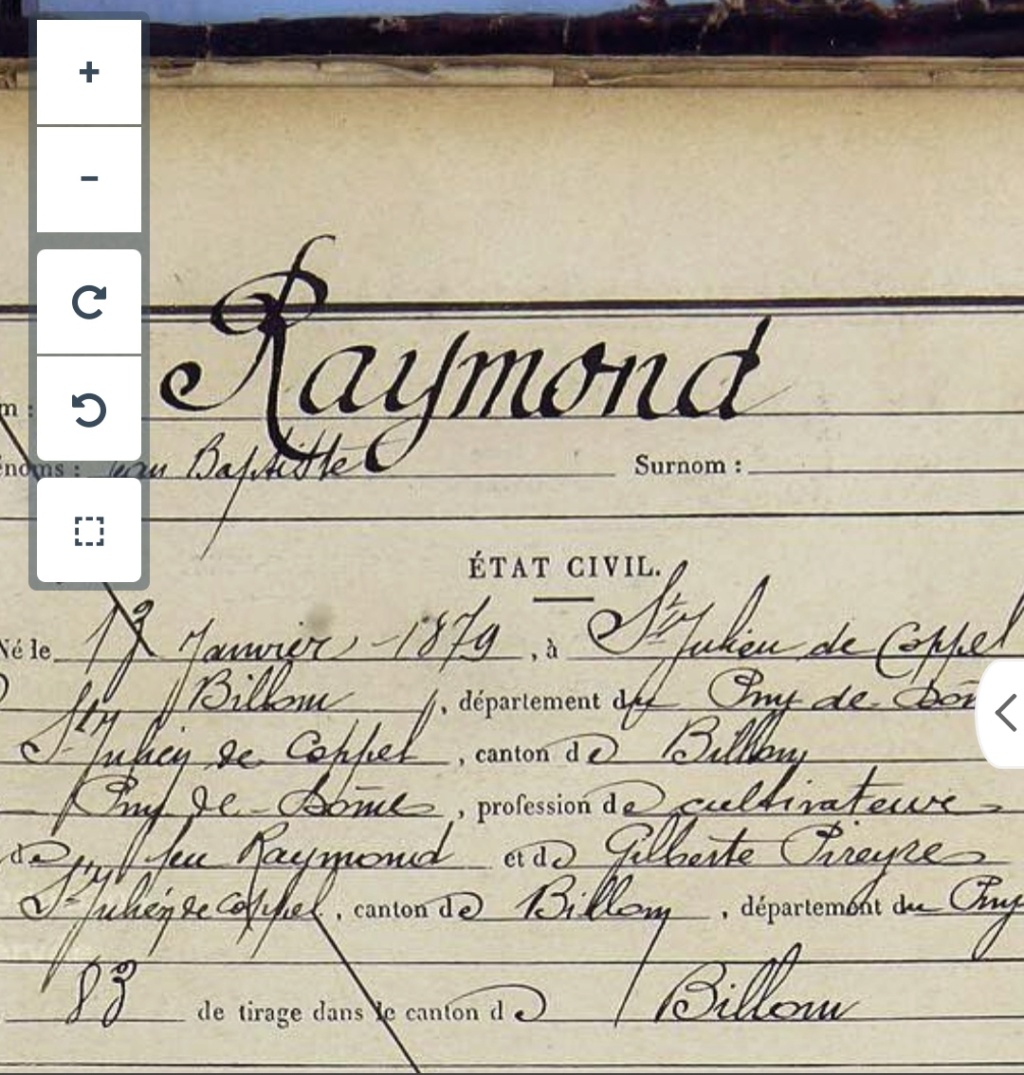 Raymond
m :
énoms : Jean Baptiste Surnom :
ÉTAT CIVIL.
Né le 13 Janvier 1879, à St Julien de Coppel
Billom, département du Puy de Dôm
St Julien de Coppel, canton de Billom
Puy de Dôme, profession de cultivateur
de feu Raymond et de Gilberte Pireyre
St Julien de Coppel, canton de Billom, département du Puy
83 de tirage dans le canton d Billom